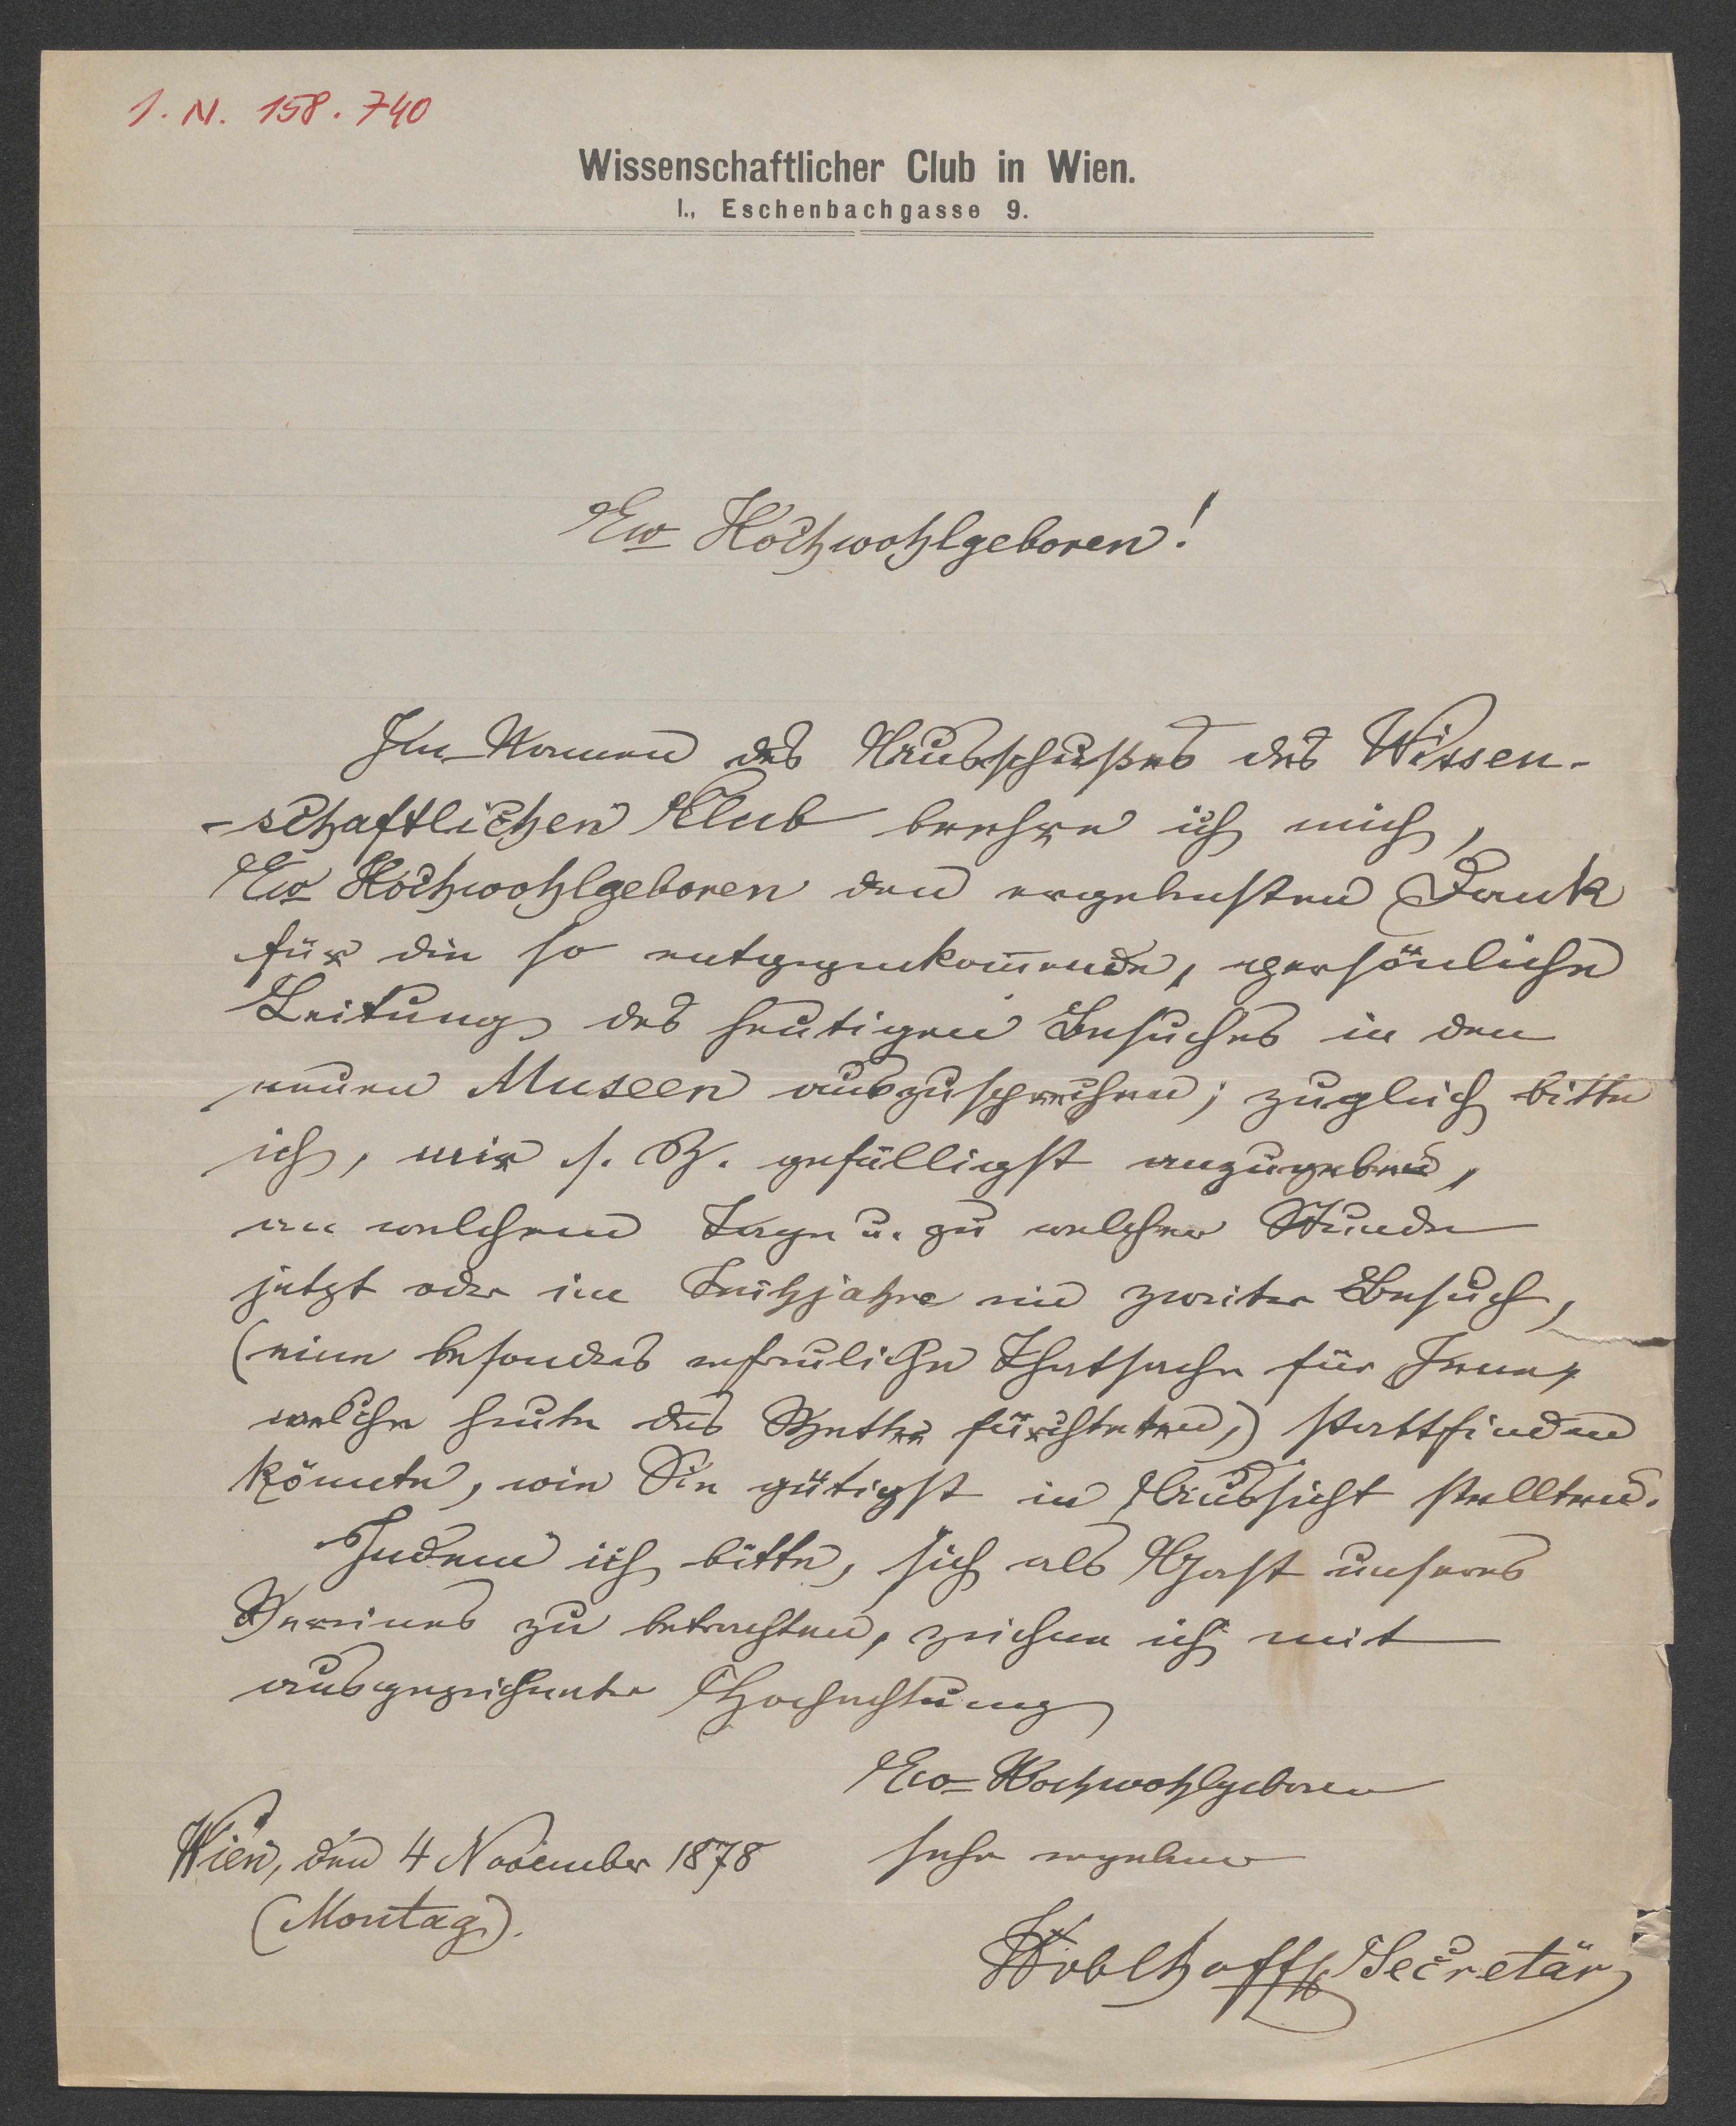 I. N. 158.740
Wissenschaftlicher Club in Wien.
I., Eschenbachgasse 9.
Ew Hochwohlgeboren!
Im Namen des Ausschußes des Wissen-
-schaftlichen Club beehre ich mich,
Ew Hochwohlgeboren den ergebensten Dank
für die so entgegenkom̄ende, persönliche
Leitung des heutigen Besuches in den
neuen Museen auszusprechen; zugleich bitte
ich, mir s. Z. gefälligst anzugeben,
an welchem Tage u. zu welcher Stunde
jetzt oder im Frühjahre ein zweiter Besuch,
(eine besonders erfreuliche Thatsache für Jene,
welche heute das Wetter fürchteten,) stattfinden
könnte, wie Sie gütigst in Aussicht stellten.
Indem ich bitte, sich als Gast unseres
Vereines zu betrachten, zeichne ich mit
ausgezeichneter Hochachtung
Ew Hochwohlgeboren
sehr ergebener
Wien, den 4 November 1878
(Montag).
Secretär